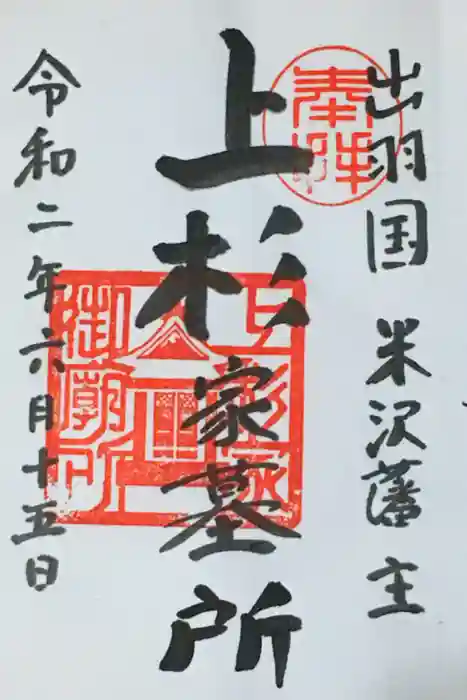 出羽国 米沢藩主
奉拝
上杉家墓所
上杉家御廟所
令和二年六月十五日